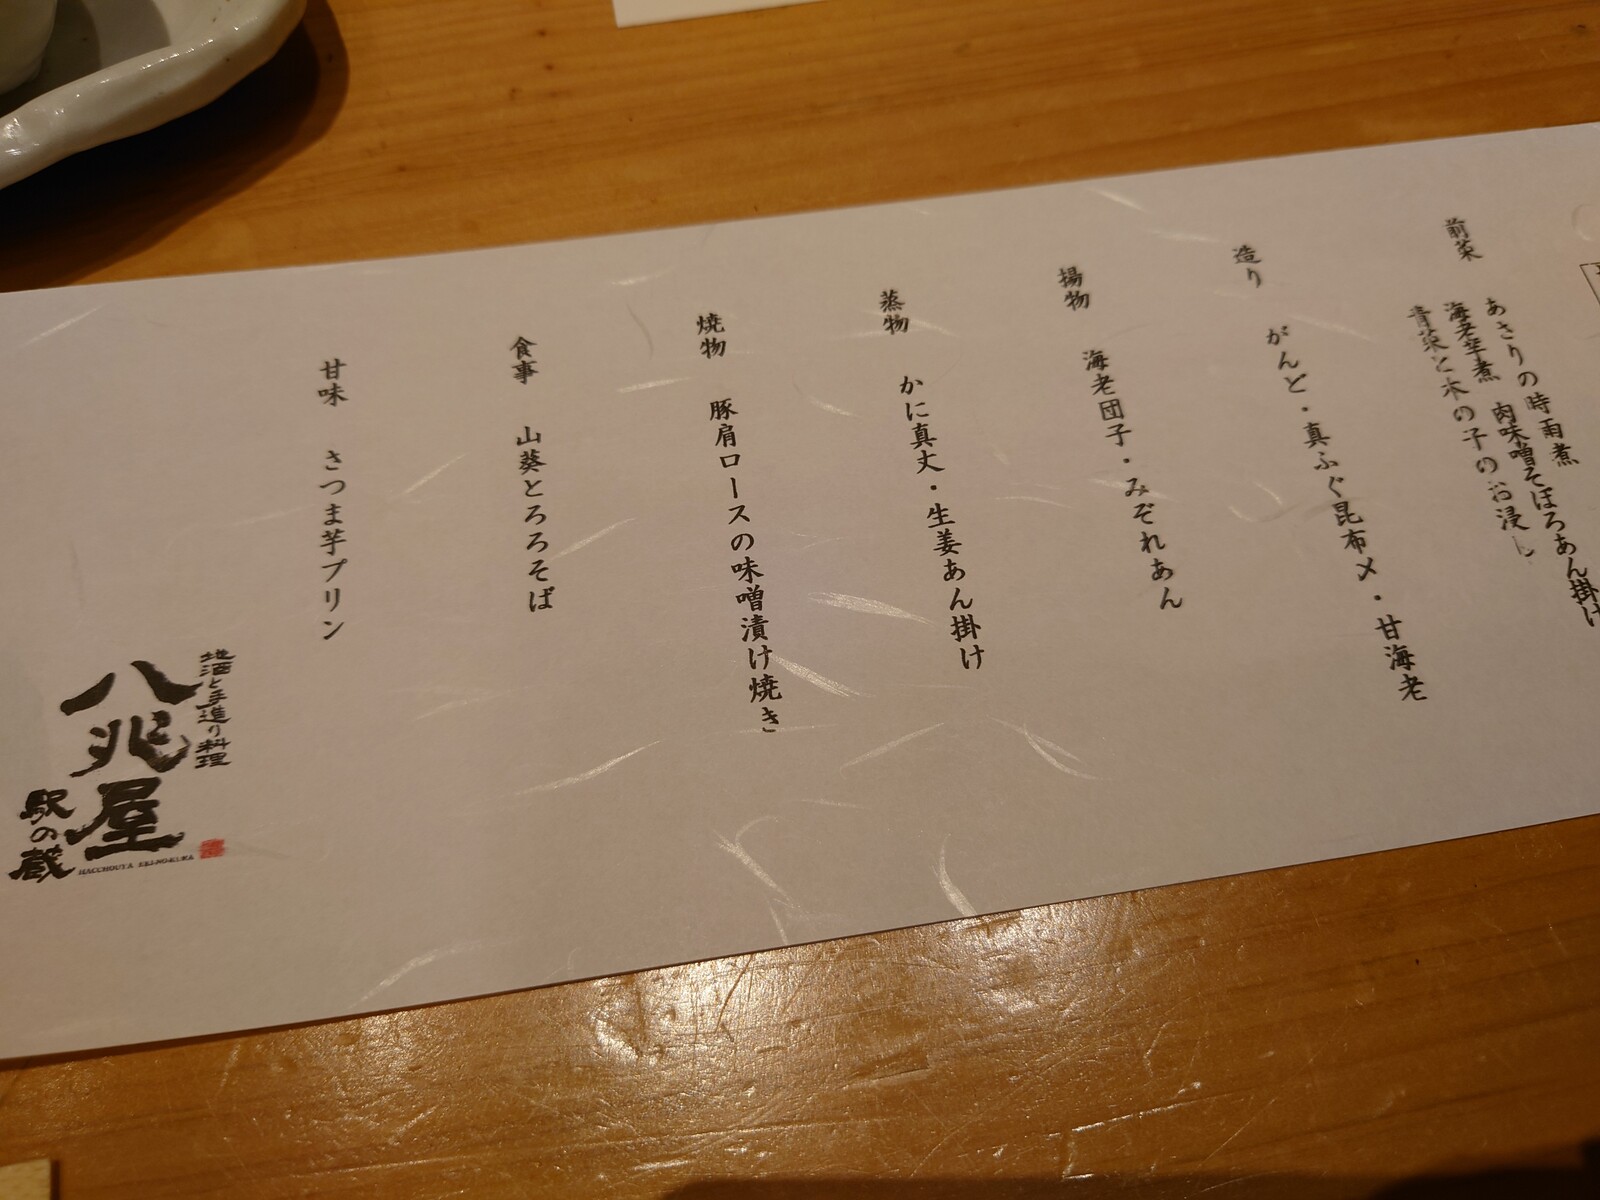 前菜
あさりの時雨煮
海老芋煮 肉味噌そぼろあん掛け
青菜と木の子のお浸し
造り がんど・真ふぐ昆布〆・甘海老
揚物 海老団子・みぞれあん
蒸物 かに真丈・生姜あん掛け
焼物 豚肩ロースの味噌漬け焼き
食事 山葵とろろそば
甘味 さつま芋プリン
地酒と手造り料理
八兆屋
駅の蔵
HACCHOUYA EKI-NO-KURA